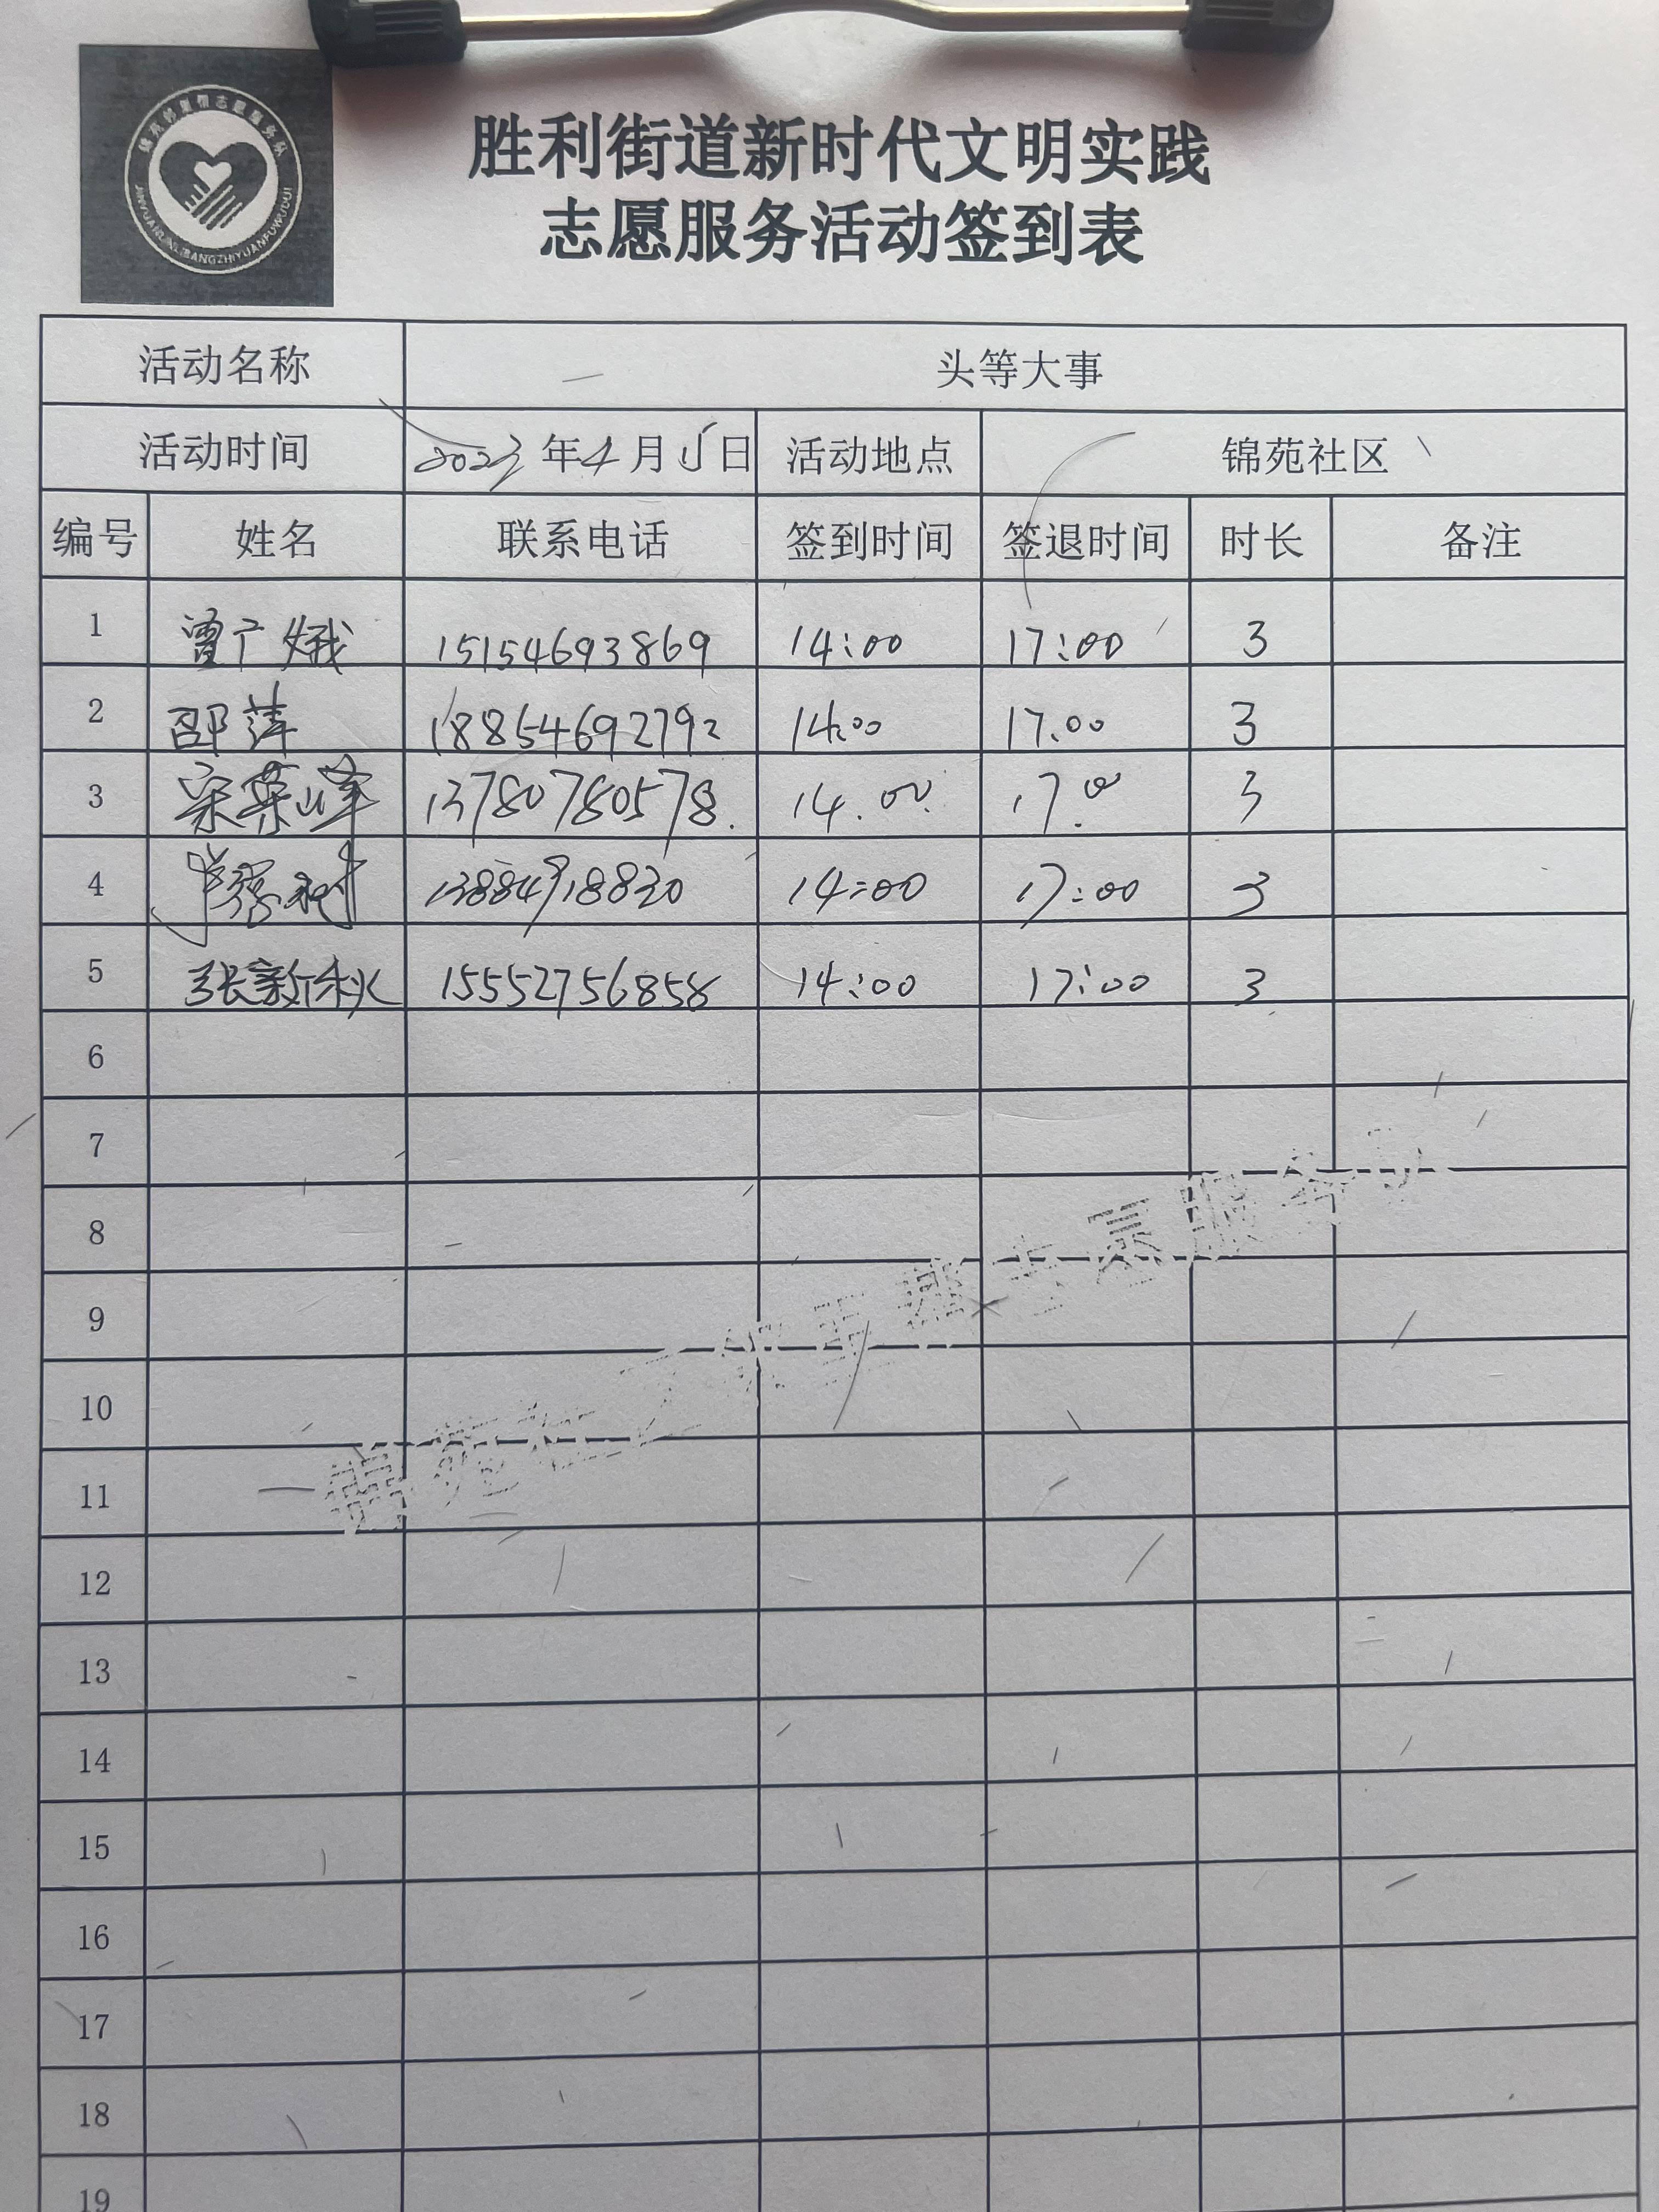 锦苑邻里帮志愿服务队
JINYUANLINLIBANGZHIYUANFUWUDUI
胜利街道新时代文明实践
志愿服务活动签到表
活动名称 头等大事
活动时间 2023年4月15日 活动地点 锦苑社区
编号 姓名 联系电话 签到时间 签退时间 时长 备注
1 曾广娥 15154693869 14:00 17:00 3
2 邵萍 18854692792 14:00 17.00 3
3 宋荣峰 13780780578. 14.00 17.00 3
4 13884918830 14:00 17:00 3
5 张新秋 15552756858 14:00 17:00 3
6
7
8
9
10
11
12
13
14
15
16
17
18
19
锦苑社区邻里帮志愿服务队